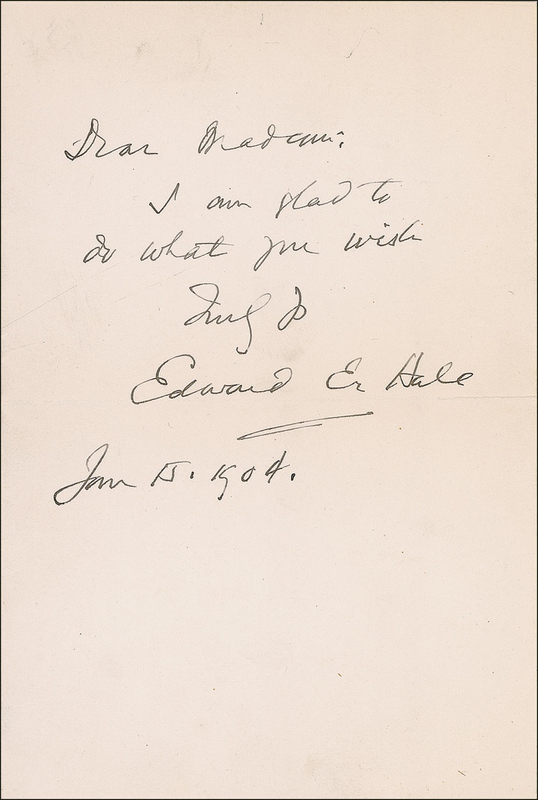 Dear Madam:
I am glad to
do what you wish
Truly Yo
Edward E. Hale
Jan 15. 1904.